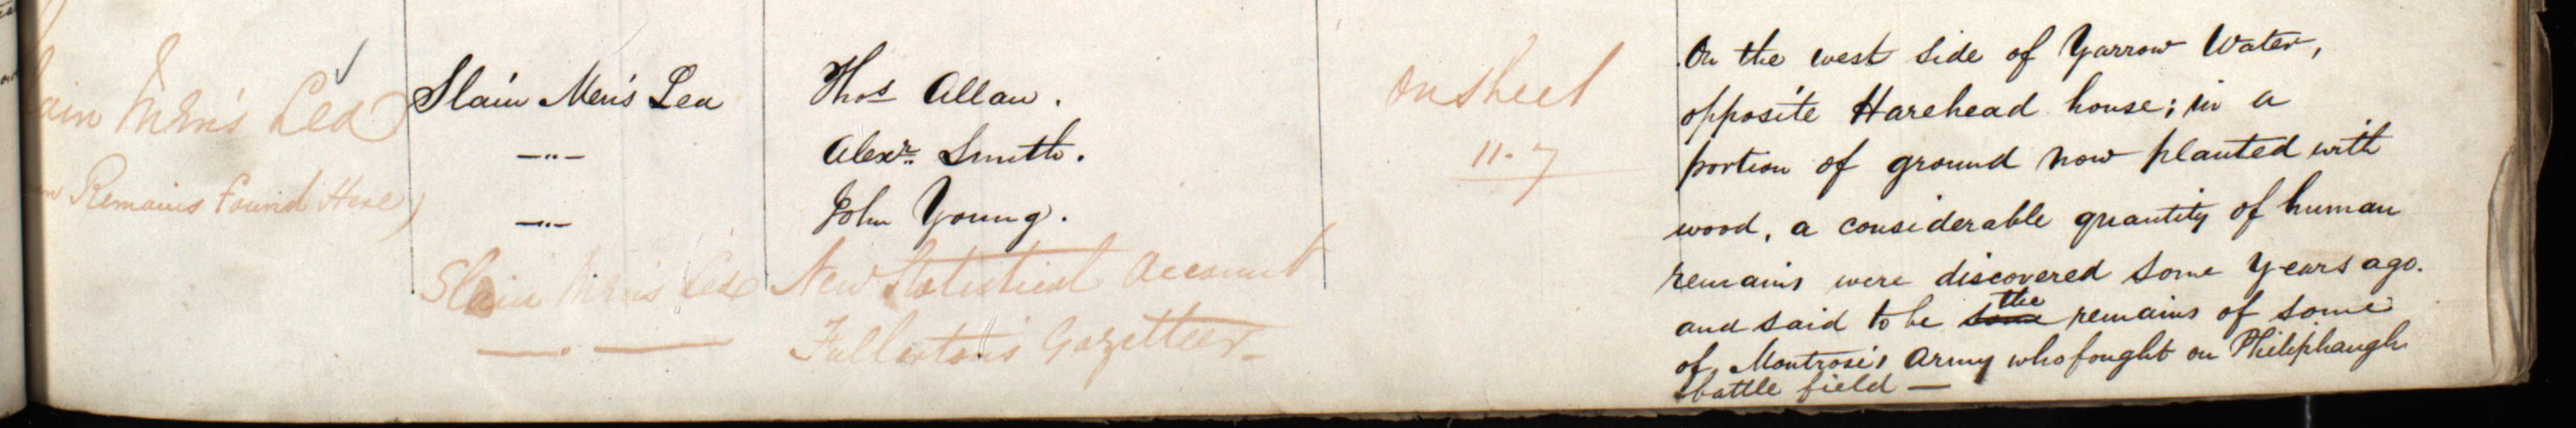 Slain Men's Lea
Remains found Here)
Slain Men's Lea
—"—
—"—
Slain Men's Lea
— . —
Thos Allan.
Alexr. Smith.
John Young.
New Statistical Account
Fullarton's Gazetteer
On Sheet
11-7
On the west side of Yarrow Water,
opposite Harehead house; in a
portion of ground now planted with
wood, a considerable quantity of human
remains were discovered some years ago.
and said to be some the remains of some
of Montrose's Army who fought on Philiphaugh
battle field —